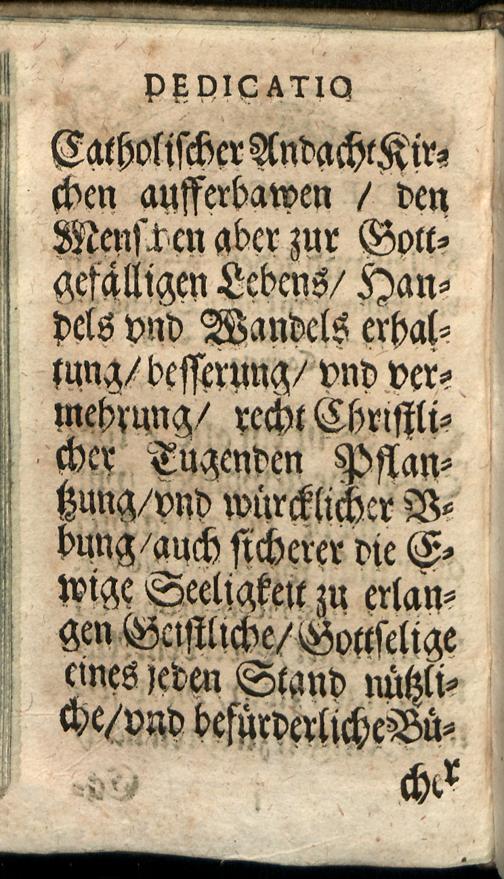 DEDICATIO
Catholischer Andacht Kir⸗
chen aufferbawen / den
Menschen aber zur Gott⸗
gefälligen Lebens/ Han⸗
dels vnd Wandels erhal⸗
tung/ besserung/ vnd ver⸗
mehrung/ recht Christli⸗
cher Tugenden Pflan⸗
tzung/vnd würcklicher V⸗
bung/auch sicherer die E⸗
wige Seeligkeit zu erlan⸗
gen Geistliche/ Gottselige
eines jeden Stand nützli⸗
che/vnd befürderliche Bü⸗
cher